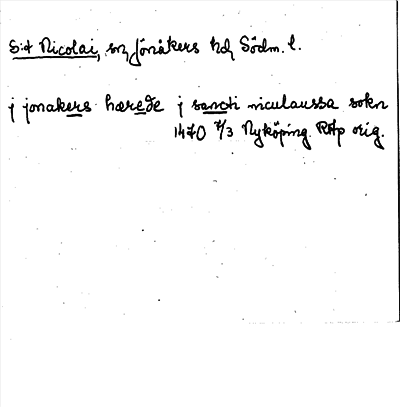 S:t Nicolai, sn Jönåkers hd, Södm. l.
j jonakers hærede j sancti niculaussa sokn
1470 7/3 Nyköping. RAp orig.